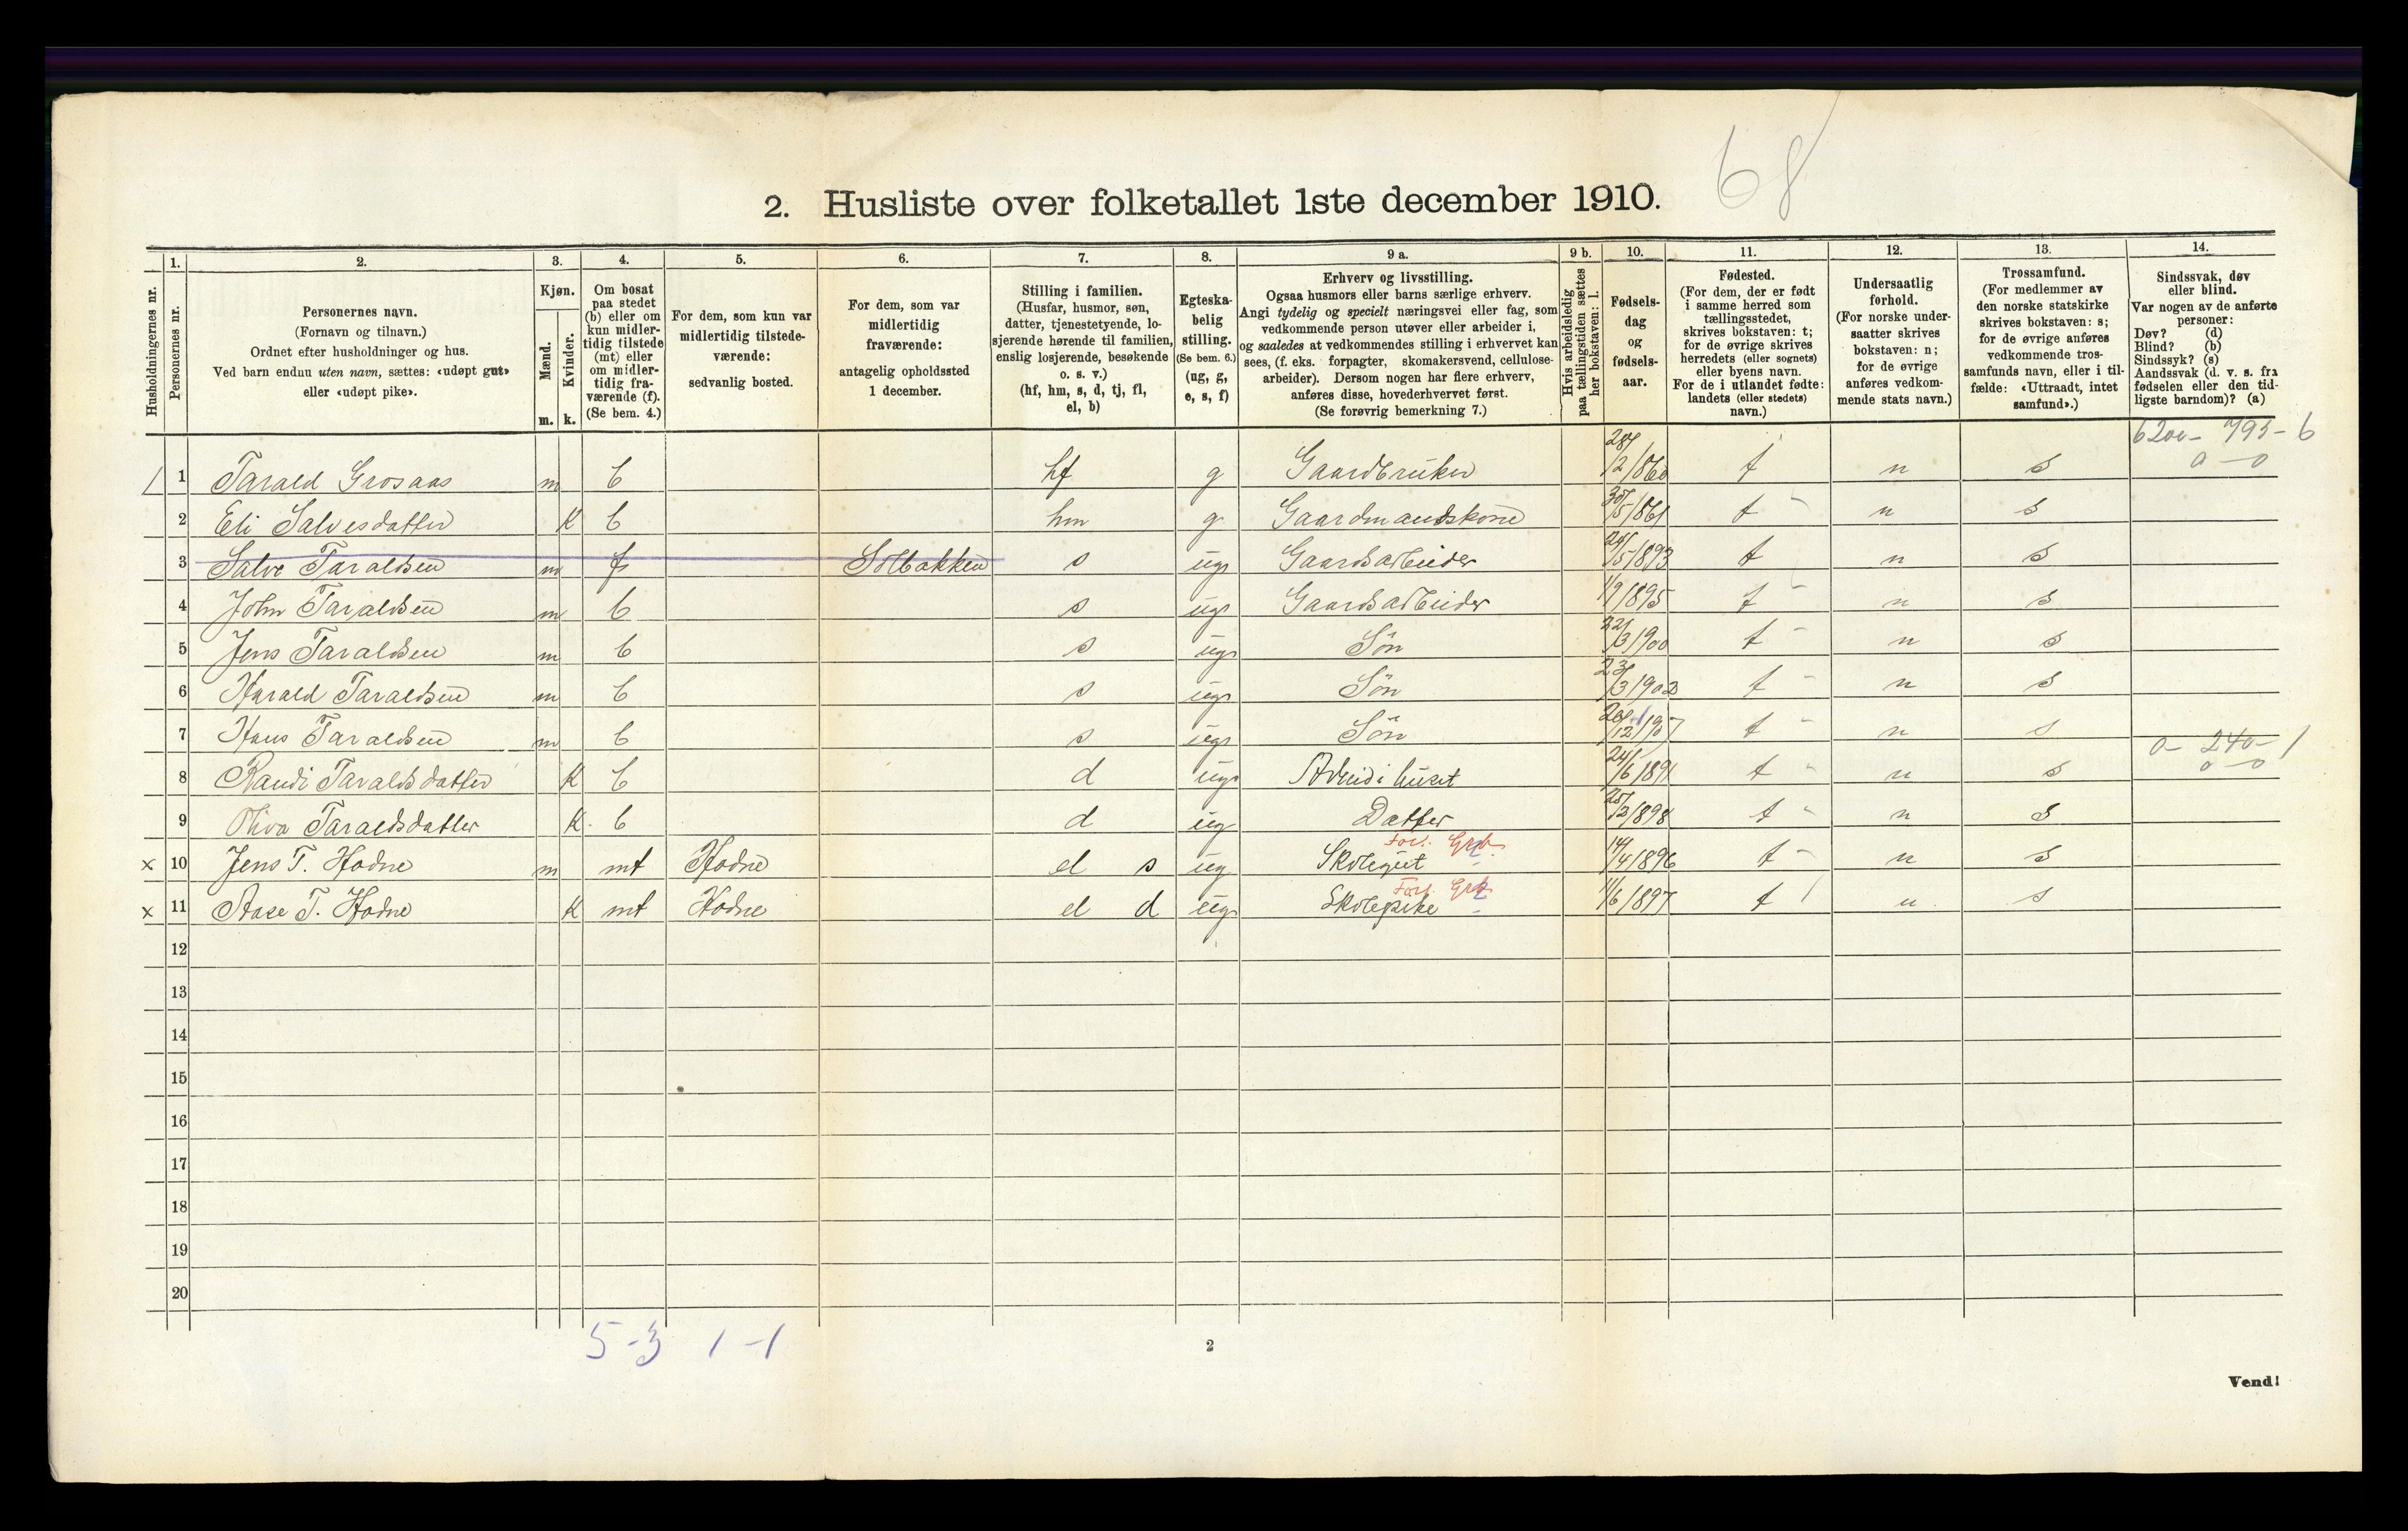 68
2. Husliste over folketallet 1ste december 1910.
Husholdningernes nr.
1.
Personernes nr.
2.
Personernes navn.
(Fornavn og tilnavn.)
Ordnet efter husholdninger og hus.
Ved barn endnu uten navn, sættes: «udøpt gut»
eller «udøpt pike».
3.
Kjøn.
Mænd.
Kvinder.
m. k.
4.
Om bosat
paa stedet
(b) eller om
kun midler-
tidig tilstede
(mt) eller
om midler-
tidig fra-
værende (f).
(Se bem. 4.)
5.
For dem, som kun var
midlertidig tilstede-
værende:
sedvanlig bosted.
6.
For dem, som var
midlertidig
fraværende:
antagelig opholdssted
1 december.
7.
Stilling i familien.
(Husfar, husmor, søn,
datter, tjenestetyende, lo-
sjerende hørende til familien,
enslig losjerende, besøkende
o. s. v.)
(hf, hm, s, d, tj, fl,
el, b)
8.
Egteska-
belig
stilling.
(Se bem. 6.)
(ug, g,
e, s, f)
9 a.
Erhverv og livsstilling.
Ogsaa husmors eller barns særlige erhverv.
Angi tydelig og specielt næringsvei eller fag, som
vedkommende person utøver eller arbeider i,
og saaledes at vedkommendes stilling i erhvervet kan
sees, (f. eks. forpagter, skomakersvend, cellulose-
arbeider). Dersom nogen har flere erhverv,
anføres disse, hovederhvervet først.
(Se forøvrig bemerkning 7.)
9 b.
Hvis arbeidsledig
paa tællingstiden sættes
her bokstaven: l.
10.
Fødsels-
dag
og
fødsels-
aar.
11.
Fødested.
(For dem, der er født
i samme herred som
tællingsstedet,
skrives bokstaven: t;
for de øvrige skrives
herredets (eller sognets)
eller byens navn.
For de i utlandet fødte:
landets (eller stedets)
navn.)
12.
Undersaatlig
forhold.
(For norske under-
saatter skrives
bokstaven: n;
for de øvrige
anføres vedkom-
mende stats navn.)
13.
Trossamfund.
(For medlemmer av
den norske statskirke
skrives bokstaven: s;
for de øvrige anføres
vedkommende tros-
samfunds navn, eller i til-
fælde: «Uttraadt, intet
samfund».)
14.
Sindssvak, døv
eller blind.
Var nogen av de anførte
personer:
Døv? (d)
Blind? (b)
Sindssyk? (s)
Aandssvak (d. v. s. fra
fødselen eller den tid-
ligste barndom)? (a)
6200 - 795 - 6
0 - 0
1 1 Tarald Grosaas m b hf g Gaardbruker 28/12/860 t n s
2 Eli Salvesdatter K b hm g Gaardmandskone 30/5/861 t - n s
3 Salve Taraldsen m f Solbakken s ug Gaardsarbeider 24/5/893 t n s
4 John Taraldsen m b s ug Gaardsarbeider 1/9/895 t - n s
5 Jens Taraldsen m b s ug Søn 22/3/900 t - n s
6 Harald Taraldsen m b s ug Søn 23/3/902 t - n s
7 Hans Taraldsen m b s ug Søn 12/907 t - n s
0 - 240 - 1
0 - 0
8 Randi Taraldsdatter K b d ug Arbeid i huset 24/6/891 t - n s
9 Oliva Taraldsdatter K b d ug Datter 25/2/898 t - n s
Fors. Grb.
x 10 Jens T. Hodne m mt Hodne el s ug Skolegut 14/4/896 t - n s
Fors. Grb.
x 11 Aase T. Hodne K mt Hodne el d ug Skolepike 11/6/897 t n s
12
13
14
15
16
17
18
19
20
5-3 1-1
2
Vend!